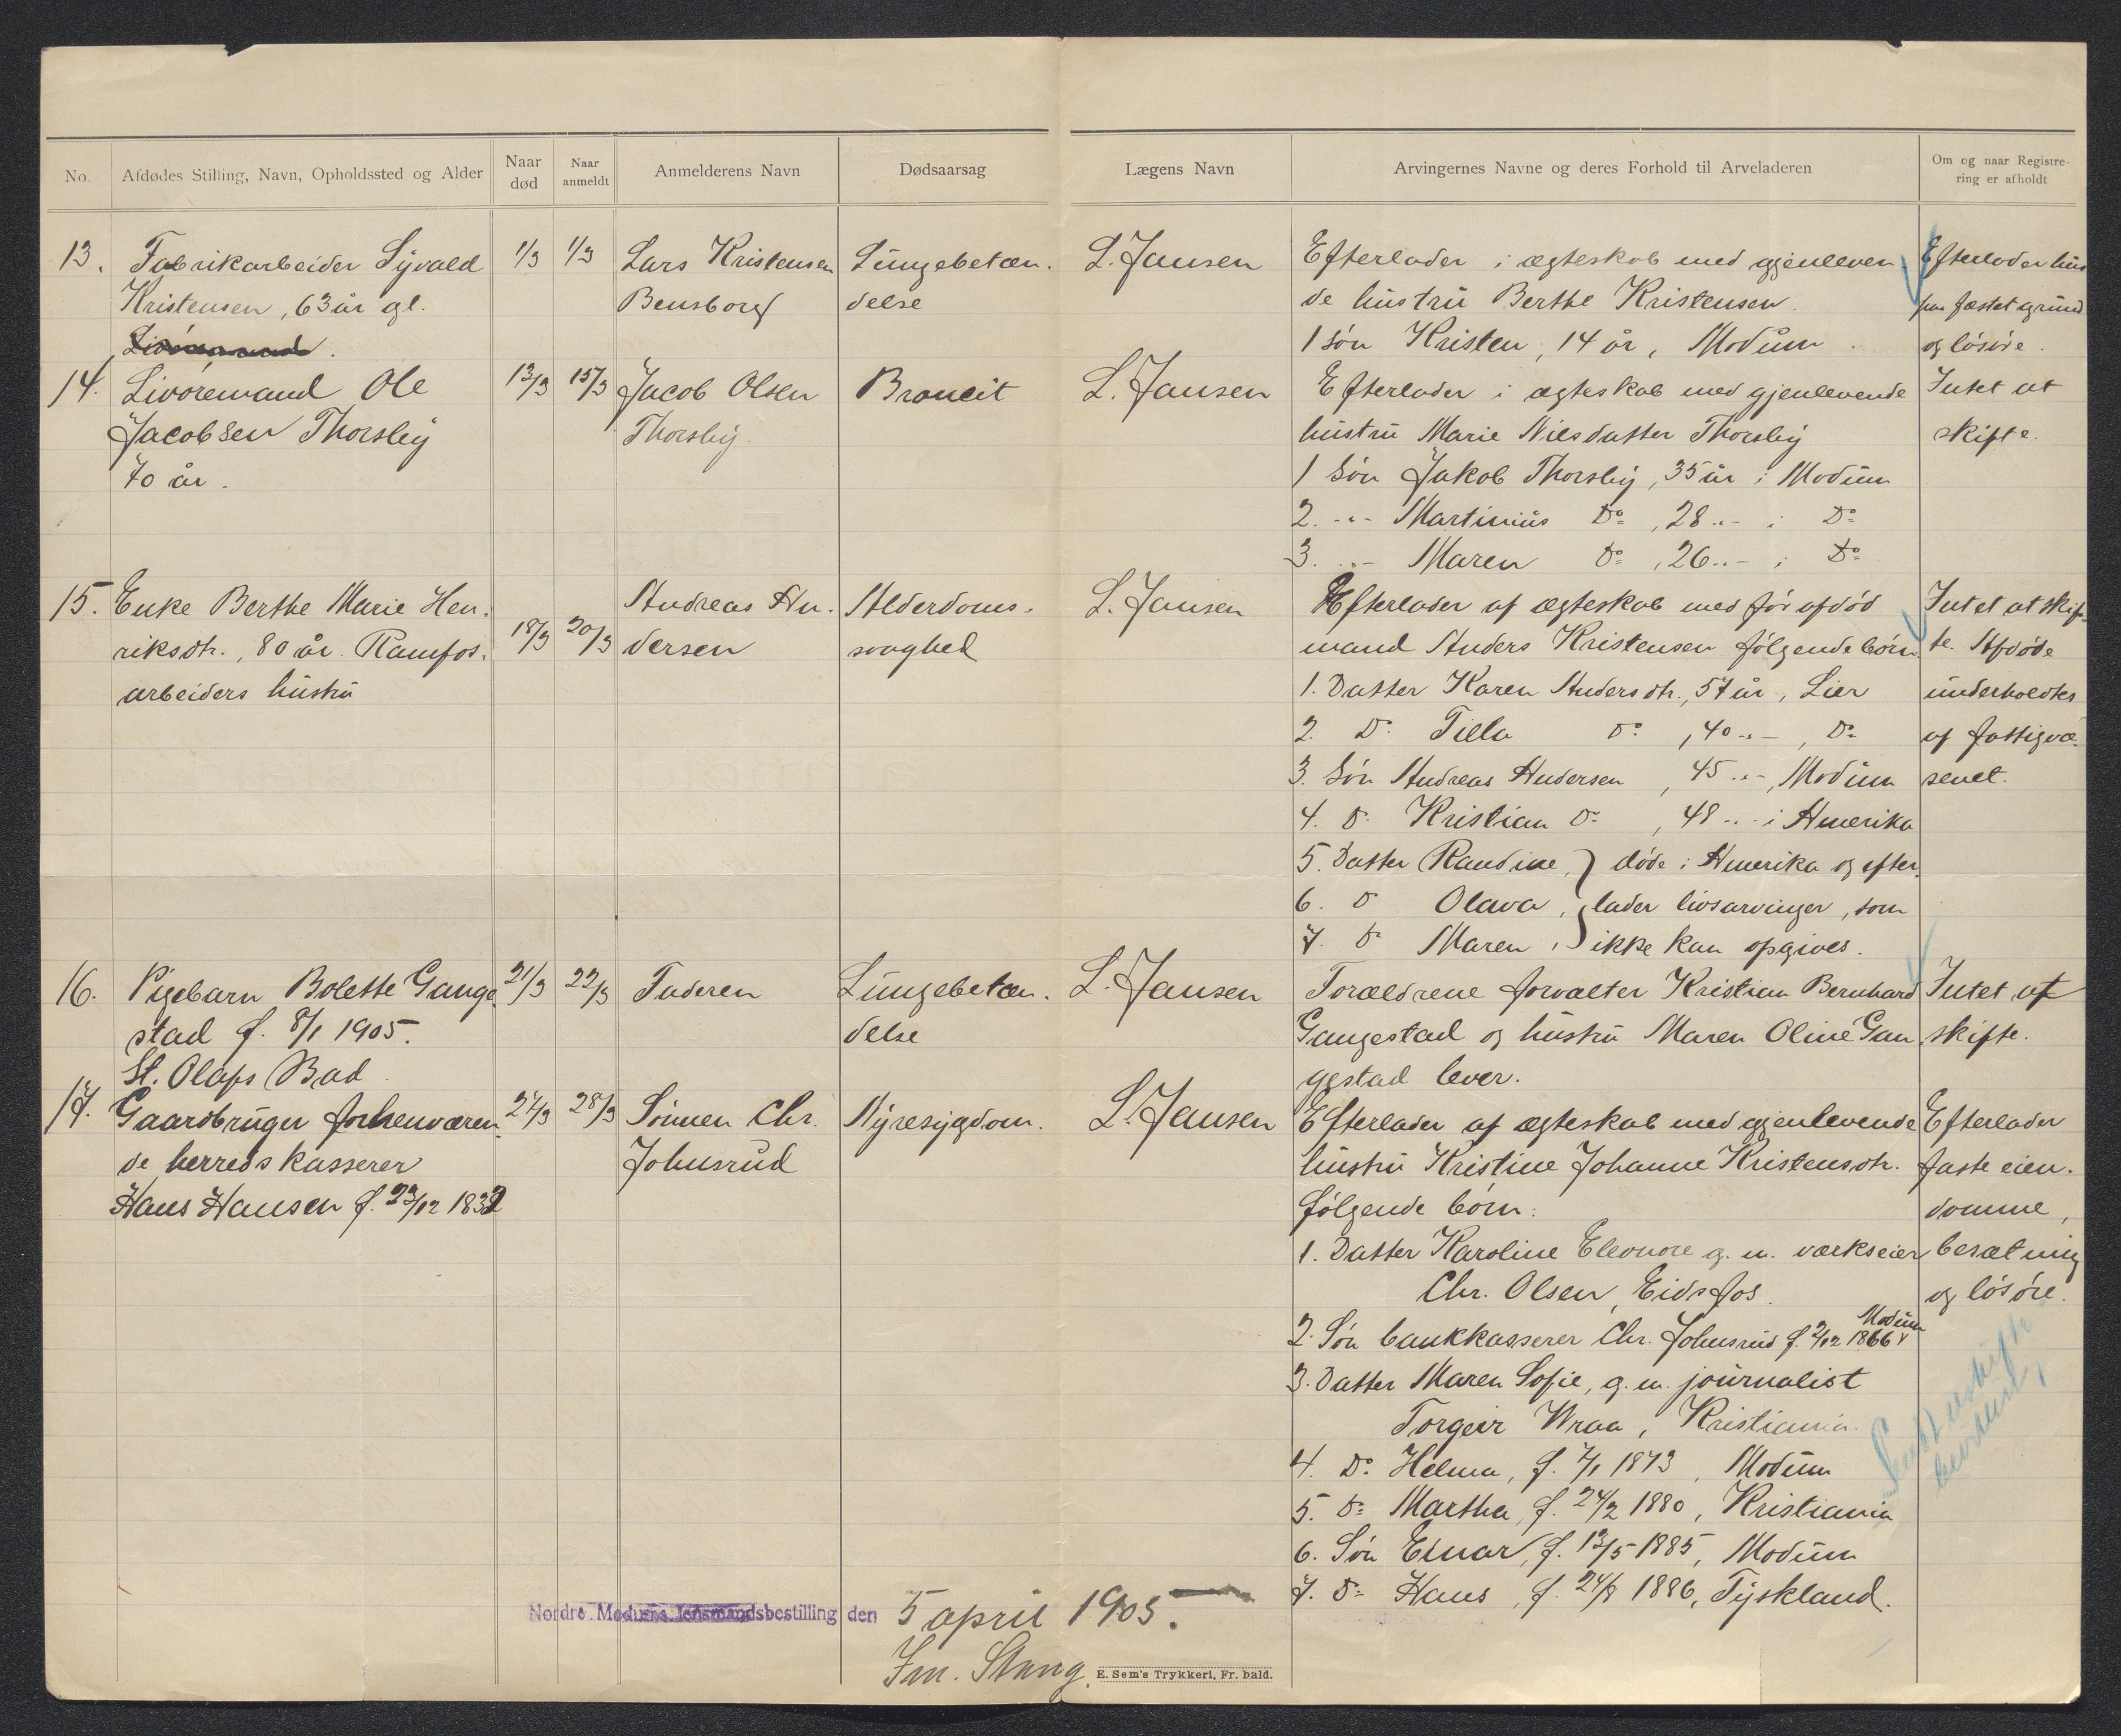 No.
Afdødes Stilling, Navn, Opholdssted og Alder
Naar død
Naar anmeldt
Anmelderens Navn
Dødsaarsag
Lægens Navn
Arvingernes Navne og deres Forhold til Arveladeren
Om og naar Registrering er afholdt
13.
Fabrikarbeider Syvald
Kristensen, 63 år gl.
1/3
1/3
Lars Kristensen
Bensborg
Lungebetæn-
delse
L. Jansen
Efterlader i ægteskab med gjenleven
de hustru Berthe Kristensen.
1 søn Kristen, 14 år, Modum.
Efterlader hus
paa fæstet grund
og løsøre.
14.
Livøremand Ole
Jacobsen Thorsby
70 år.
13/3
15/3
Jacob Olsen
Thorsby.
Broncit
L. Jansen
Efterlader i ægteskab med gjenlevende
hustru Marie Nilsdatter Thorsby
1 søn Jakob Thorsby, 35 år i Modum
2. -"- Martinius Do, 28 -"- i Do
3. -"- Maren Do, 26 -"- i Do
Intet at
skifte.
15.
Enke Berthe Marie Hen-
riksdtr., 80 år. Ramfos.
arbeiders hustru
18/3
20/3
Andreas An-
dersen
Alderdoms-
svaghed
L. Jansen
Efterlader af ægteskab med før afdød
mand Anders Kristensen følgende børn
1. Datter Karen Andersdtr., 57 år, Lier
2. Do Tilla Do, 40 -"-, Do
3. Søn Andreas Andersen, 45 -"-, Modum
4. Do Kristian Do, 48 -"- i Amerika
5. Datter Randine, } døde i Amerika og efter-
6. Do Olava, } lader livsarvinger, som
7. Do Maren, } ikke kan opgives.
Intet at skif-
te. Afdøde
underholdtes
af fattigvæ-
senet.
16.
Pigebarn Bolette Gange
stad f. 8/1 1905.
St. Olafs Bad
21/3
22/3
Faderen
Lungebetæn-
delse
L. Jansen
Forældrene forvalter Kristian Bernhard
Gangestad og hustru Maren Oline Gan-
gestad lever.
Intet at
skifte.
17.
Gaardbruger forhenværen-
de herredskasserer
Hans Hansen f. 23/12 1832
27/3
28/3
Sønnen Chr.
Johnsrud
Nyresygdom.
L. Jansen
Efterlader af ægteskab med gjenlevende
hustru Kristine Johanne Kristensdtr.
følgende børn:
1. Datter Karoline Eleonore g. m. værkseier
Chr. Olsen, Eidsfos.
2. Søn bankkasserer Chr. Johnsrud f. 2/12 1866 Modum
3. Datter Maren Sofie, g. m. journalist
Torgeir Vraa, Kristiania.
4. Do Helma, f. 7/1 1873, Modum
5. Do Martha, f. 24/2 1880, Kristiania
6. Søn Einar, f. 13/5 1885, Modum
7. Do Hans, f. 24/8 1886, Tyskland.
Efterlader
faste eien-
domme,
besætning
og løsøre.
Nordre Modums lensmandsbestilling den 5 april 1905.
Fm. Stang.
E. Sem's Trykkeri, Fr. hald.